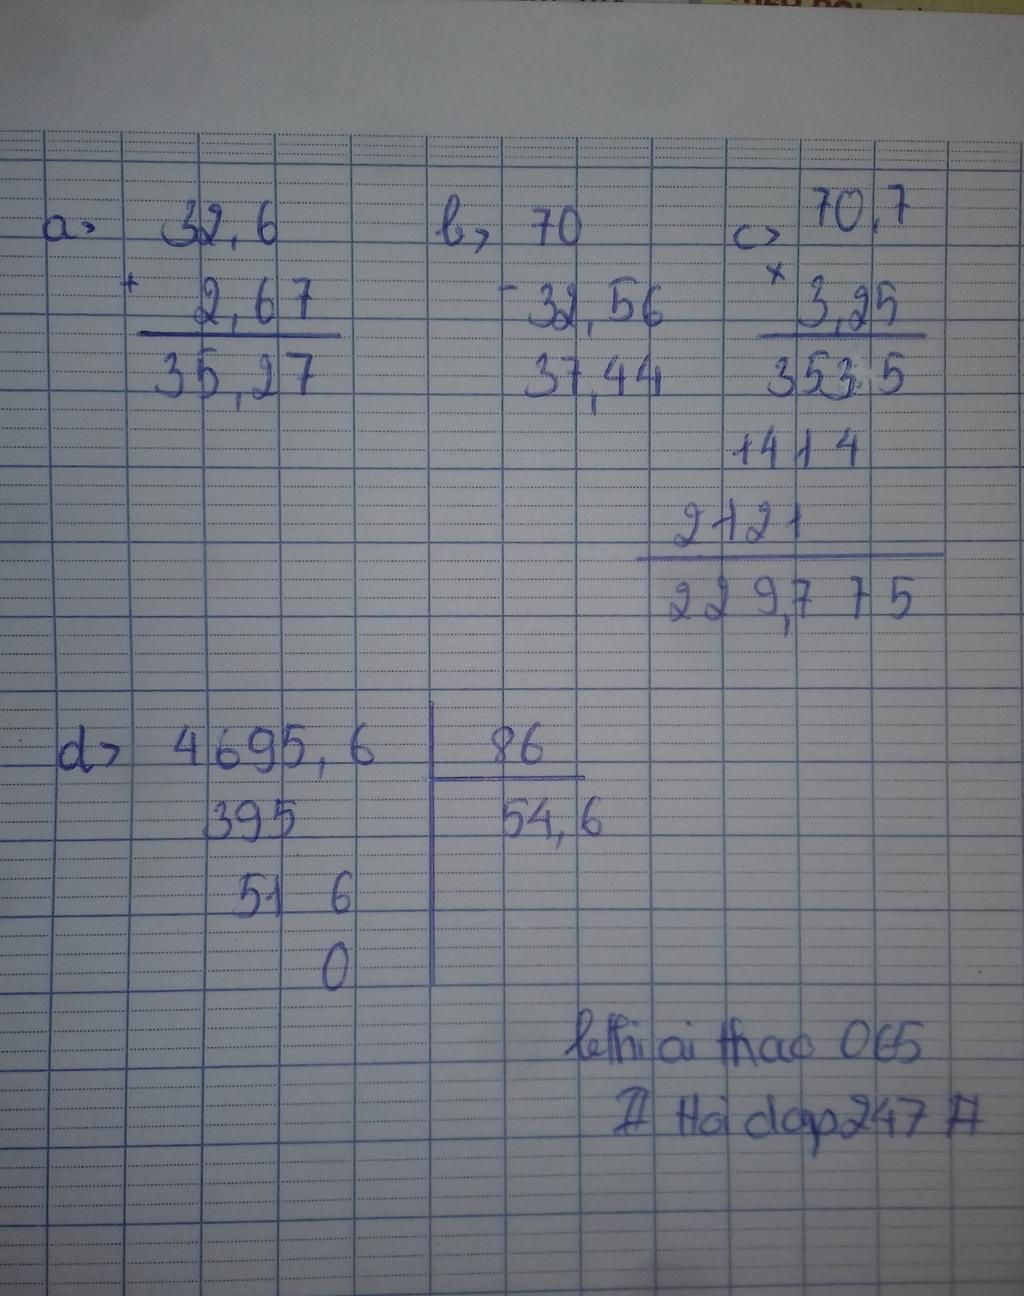 a> 32,6
+ 2,67
35,27
b> 70
- 32,56
37,44
c> 70,7
× 3,25
3535
1414
2121
229,775
d> 4695,6 86
395 54,6
51 6
0
lethiaithao065
# Hoidap247 #